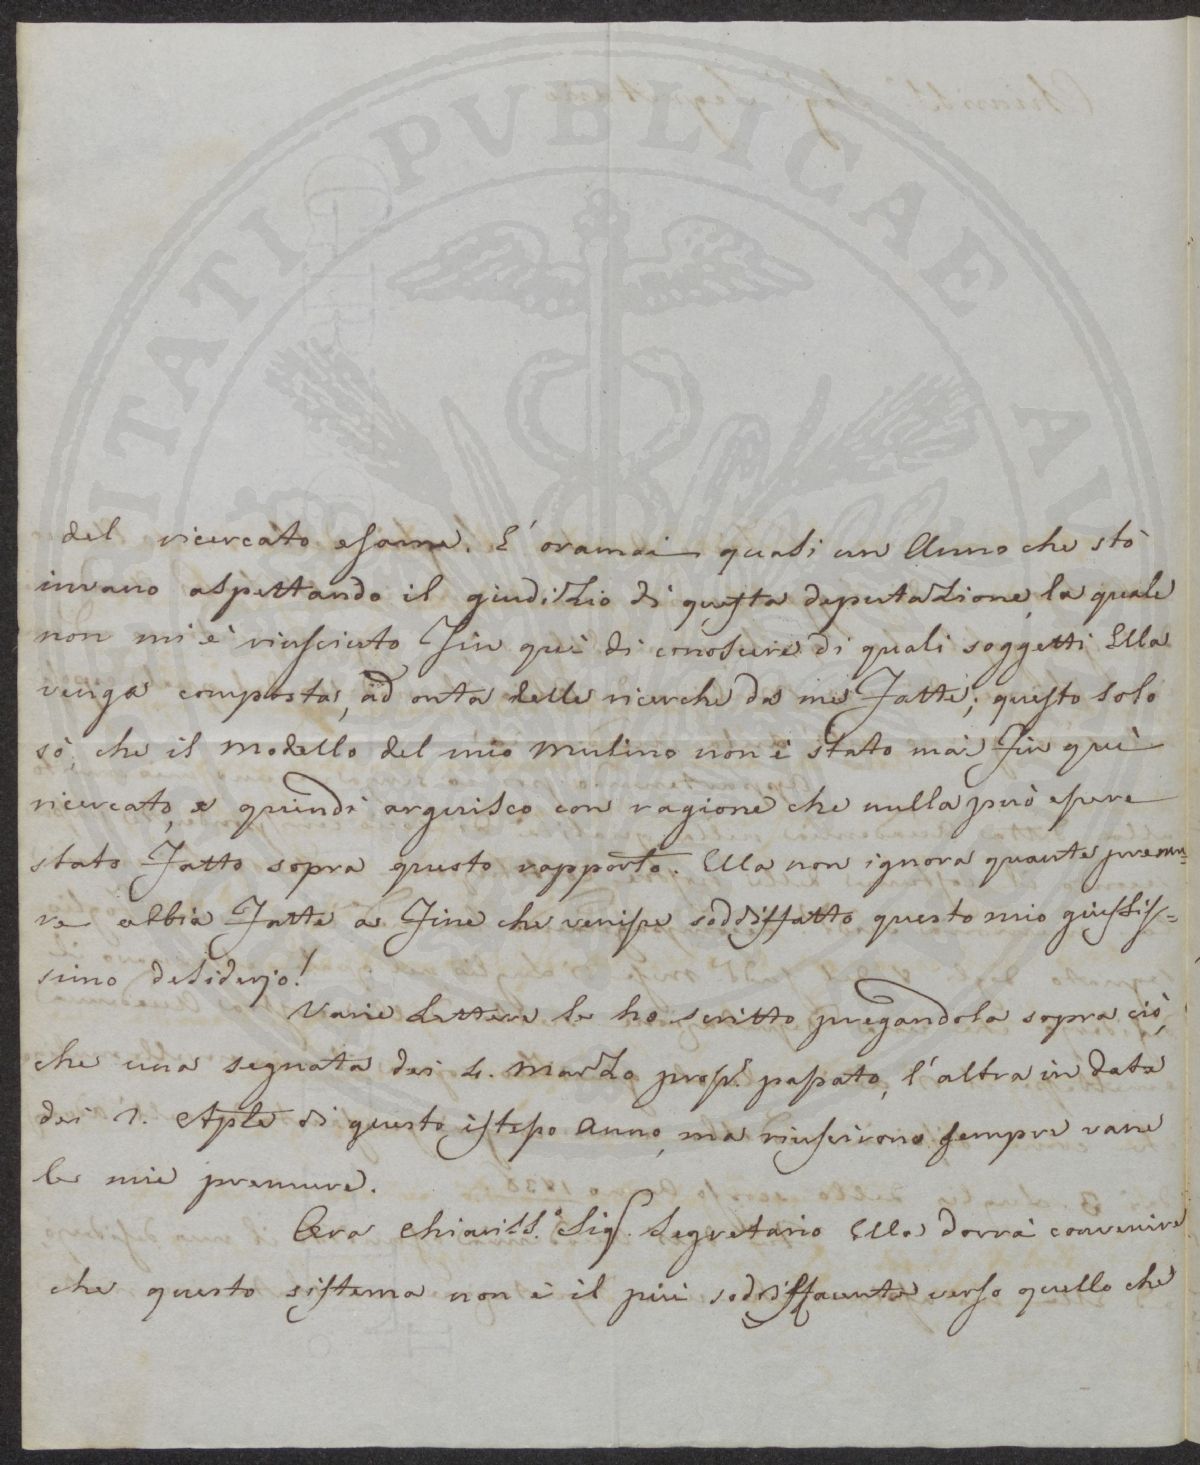 PVBLICAE
ITATI
del ricercato esame. E' oramai quasi un Anno che stò
invano aspettando il giudizio di questa deputazione, la quale
non mi è riusciuto fin quì di conoscere di quali soggetti Ella
venga composta, ad onta delle ricerche da me fatte; questo solo
sò, che il modello del mio mulino non è stato mai fin quì
ricercato, e quindi arguisco con ragione che nulla può essere
stato fatto sopra questo rapporto. Ella non ignora quante premu-
re abbia fatte a fine che venisse soddisfatto questo mio giustis=
simo desiderio!
Varie lettere le ho scritto pregandola sopra ciò,
che una segnata dei 4. Marzo pross. passato, l'altra in data
dei 1. Aple di questo istesso anno, ma riuscirono sempre vane
le mie premure.
Ora Chiariss.º Sig. Segretario Ella dovrà convenire
che questo sistema non è il più soddisfacente verso quello che